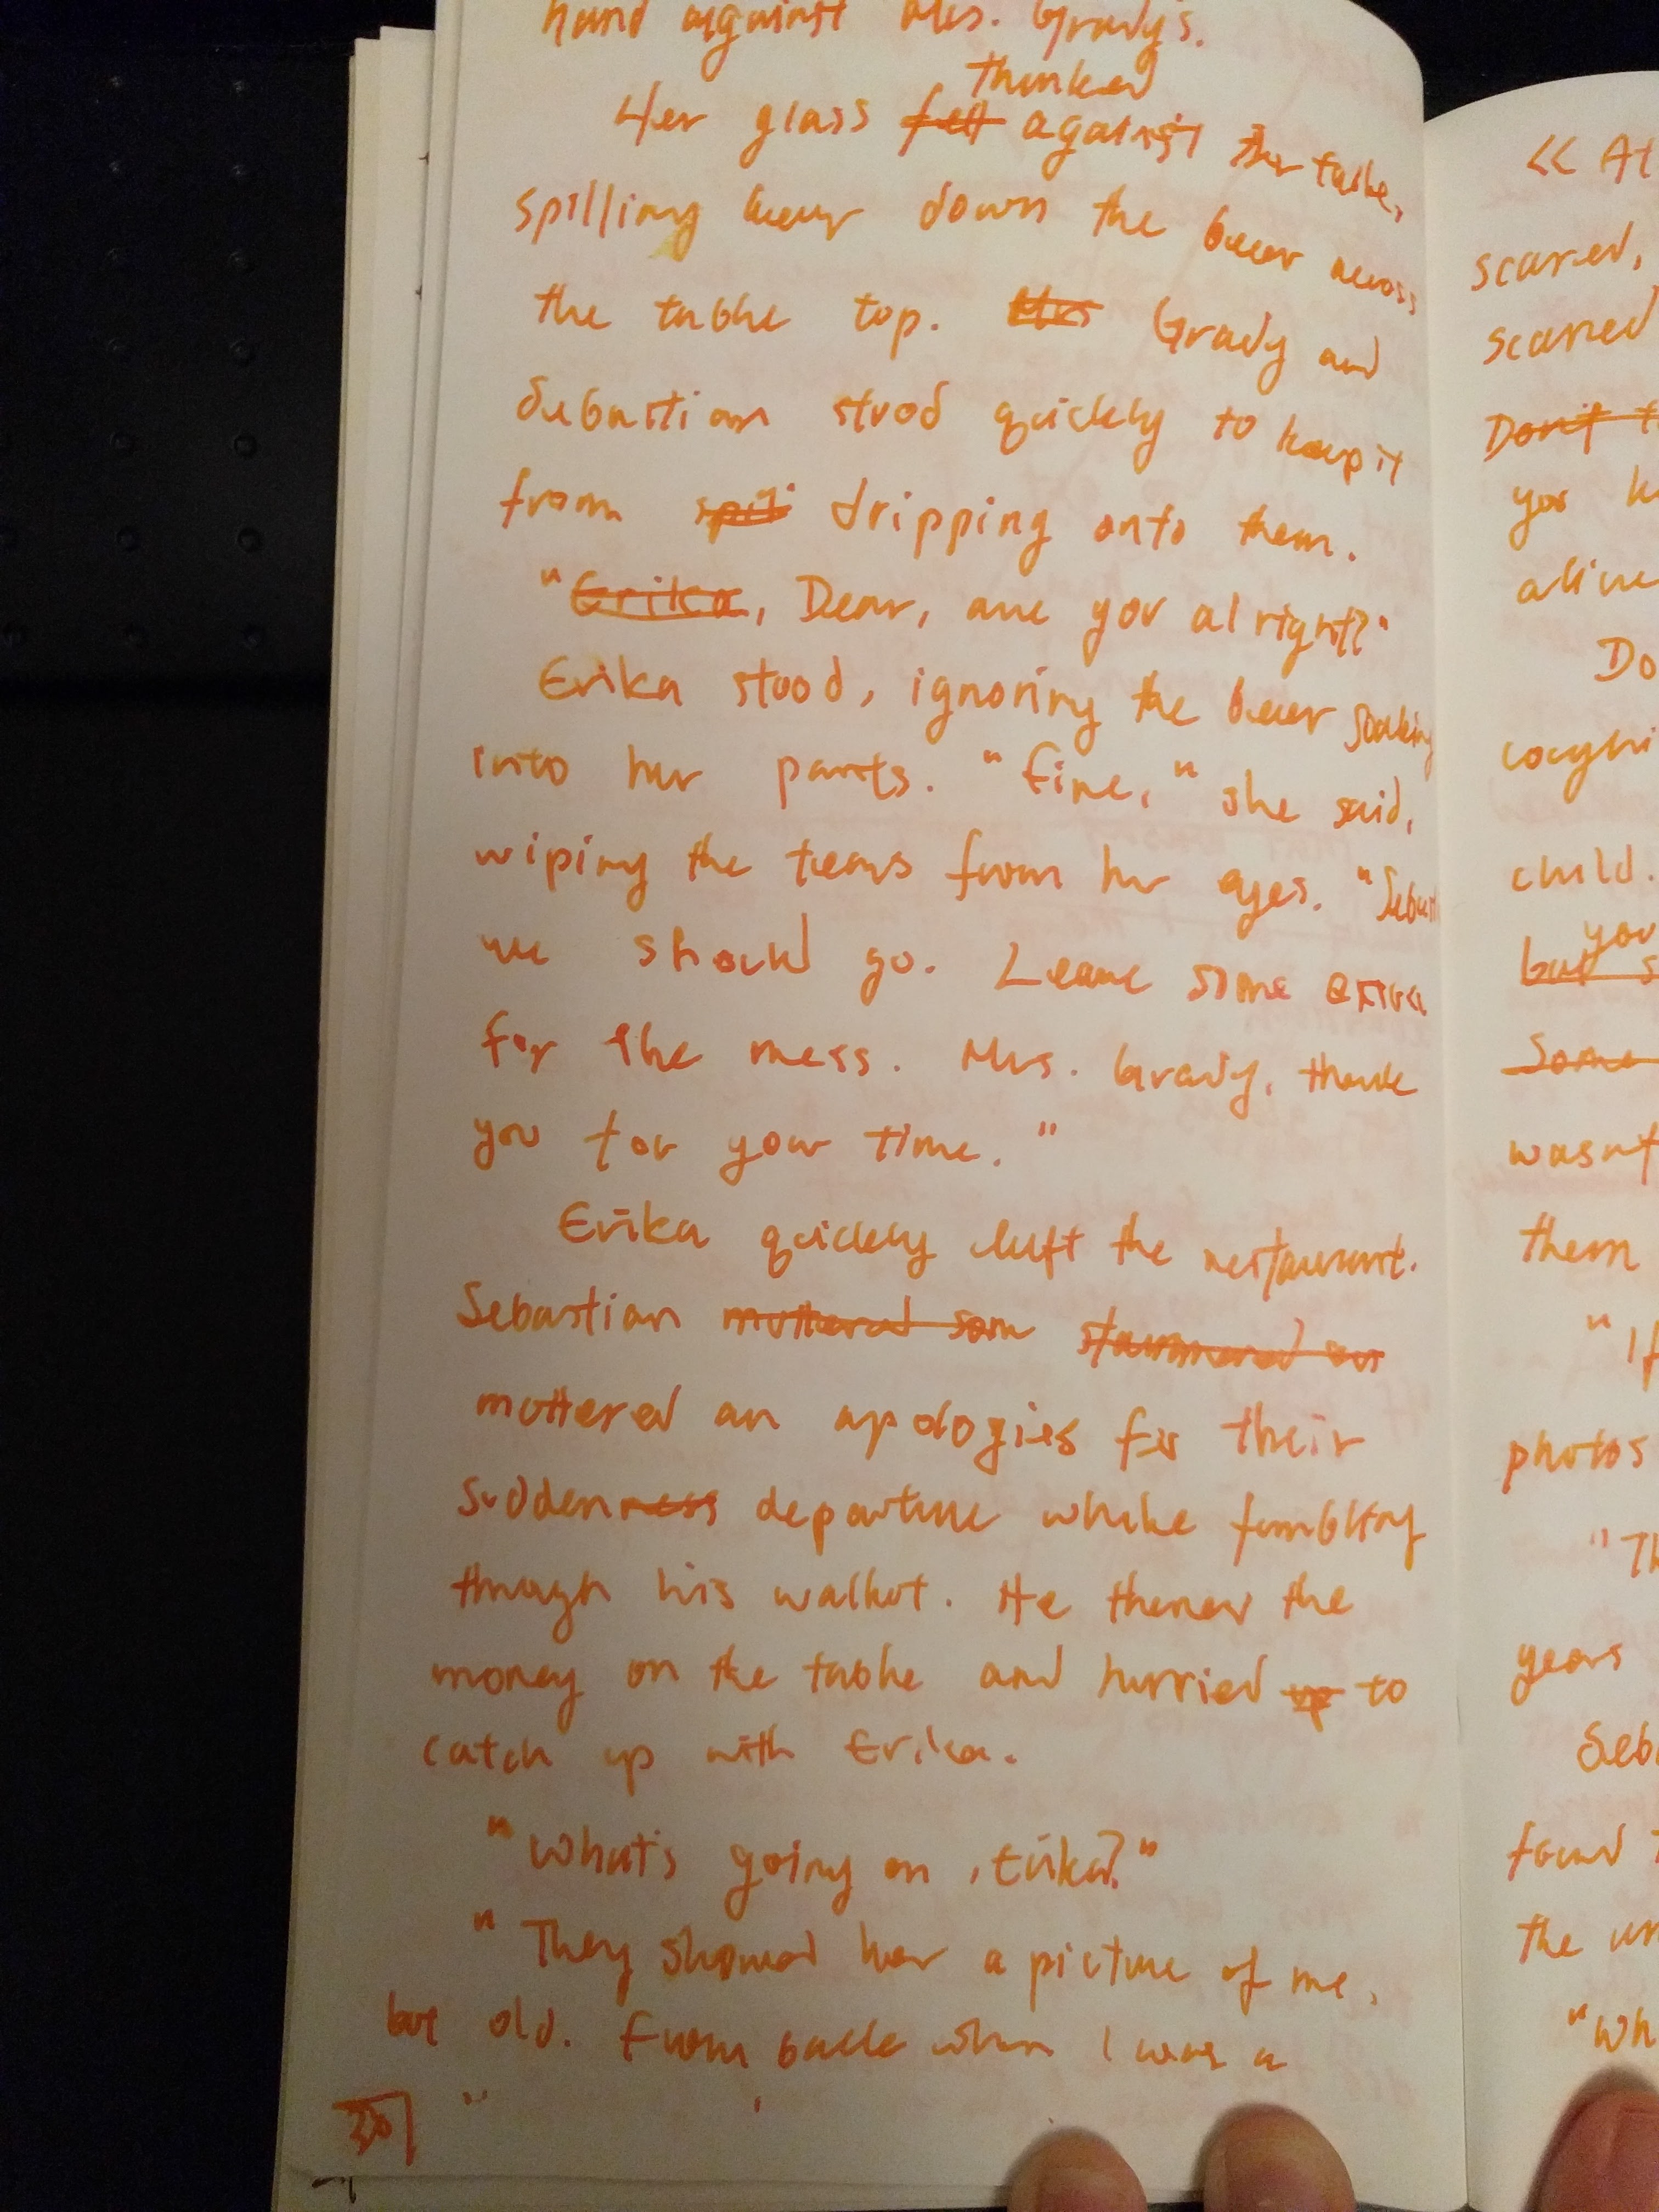 hand against Mrs. Grady's.
thinked
Her glass fell against the table,
spilling beer down the beer across
the table top. Mrs Grady and
Sebastian stood quickly to keep it
from spil dripping onto them.
"Erika, Dear, are you alright?"
Erika stood, ignoring the beer soaking
into her pants. "Fine," she said,
wiping the tears from her eyes. "Sebasti
we should go. Leave some extra
for the mess. Mrs. Grady, thank
you for your time."
Erika quickly left the restaurant.
Sebastian muttered som stammered an
muttered an apologies for their
suddenness departure while fumbling
through his wallet. He threw the
money on the table and hurried up to
catch up with Erika.
"What's going on, Erika?"
"They showed her a picture of me,
but old. From back when I was a
<< At
scared,
scared
Don't t
you k
alive
Do
coughi
child.
you
but s
Some
wasn't
them
"If
photos
"Th
years
Seb
found t
the un
"Wh